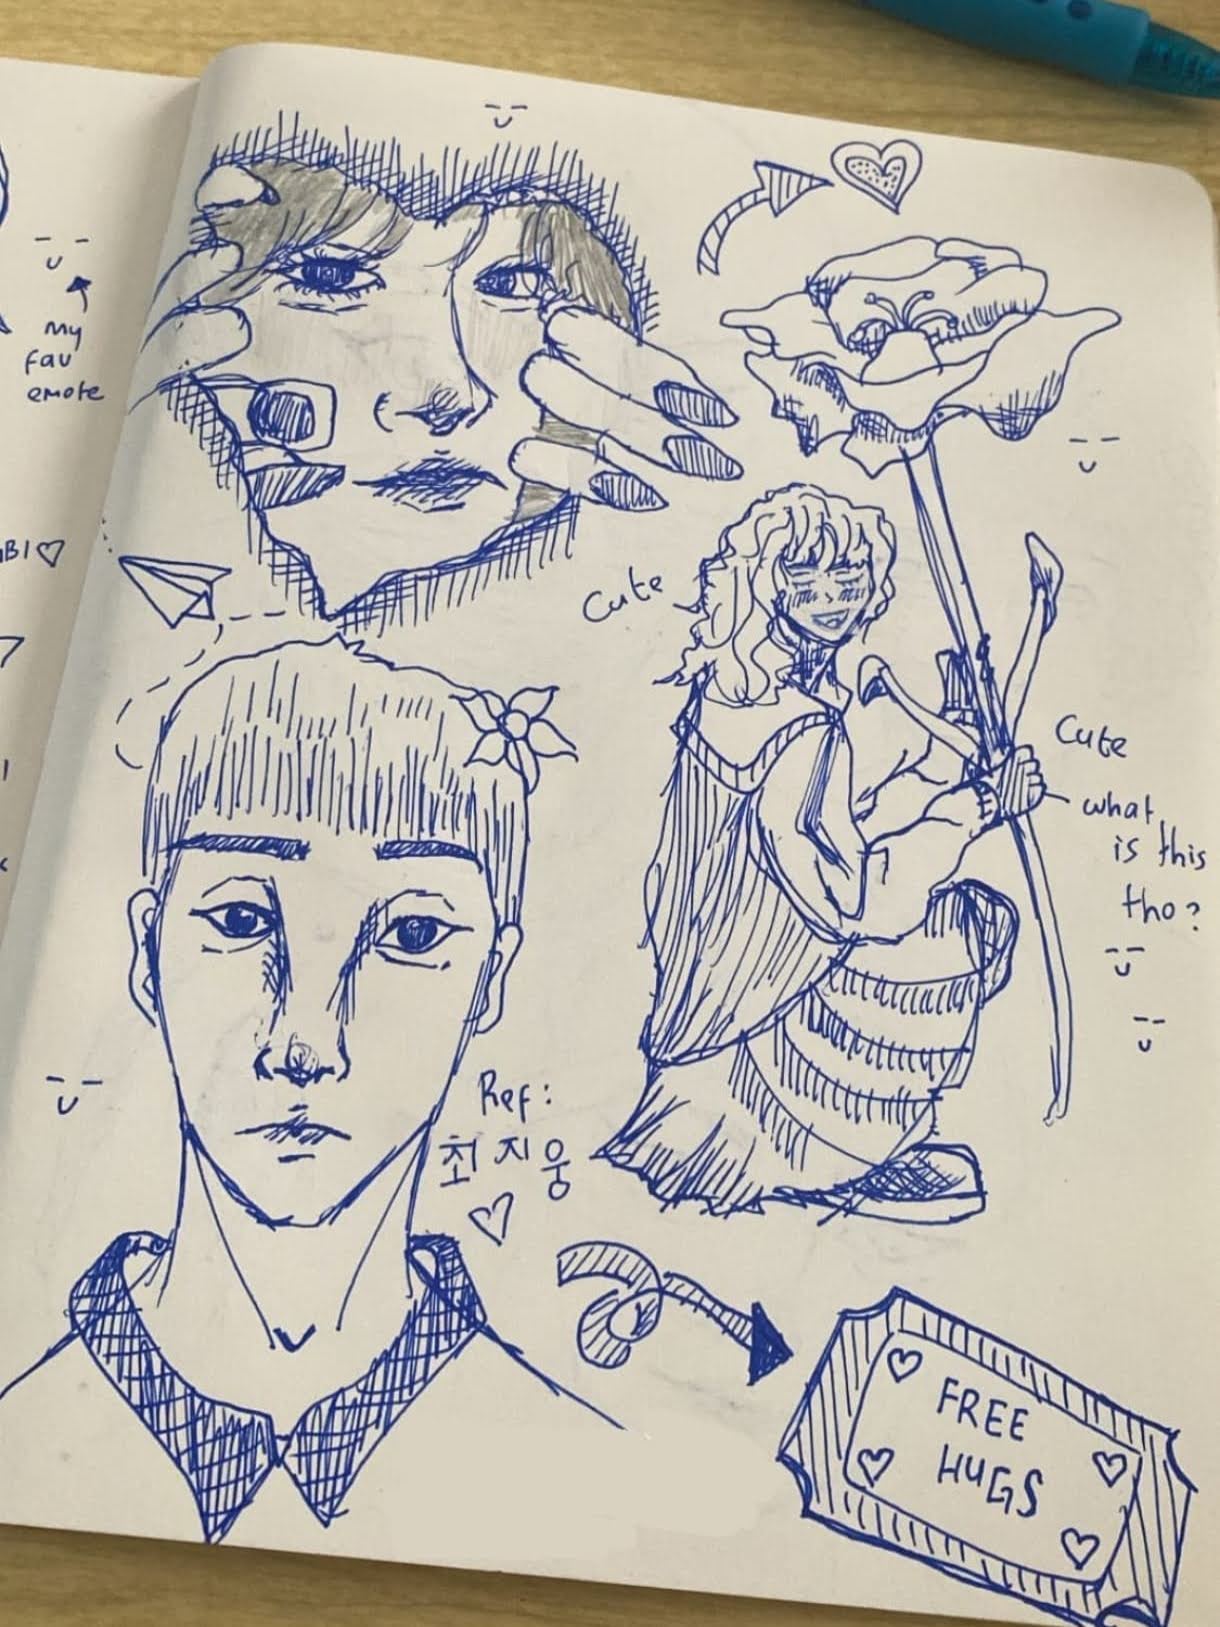 my
fav
emote
Cute
Cute
what
is this
tho?
Ref:
최지웅
FREE
HUGS